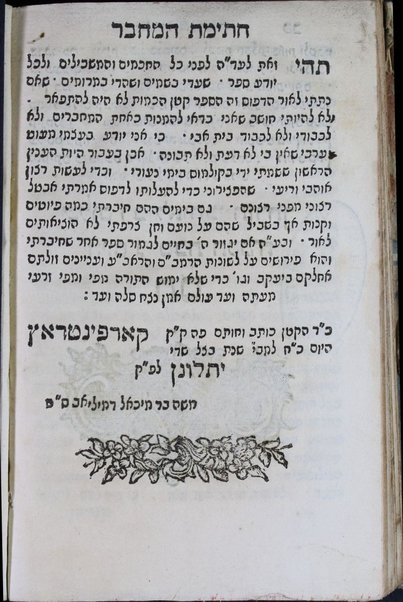 חתימת המחבר
תהי זאת לעד״ה לפני כל החכמים והמשכילים ולכל
יודע ספר · שעדי בשמים ושהדי במרומים · שאם
נתתי לאור הדפום זה הספר קטן הכמות לא היה להתפאר ·
ולא להיותי חושב שאני כדאי להמנות באחת המחברים ולא
לכבודי ולא לכבוד בית אבי · כי אני יודע בעצמי מעוט
ערכי שאין בי לא דעת ולא תבונה · אכן בעבור היות הענין
הראשון ששמתי ידי בקולמוס בימי נעורי · וכדי לעשות רצון
אוהבי וריעי · שהפצירוני כדי להעלותו לדפוס אמרתי אבטל
רצוני מפני רצונם · גם בימים ההם חיברתי כמה פיוטים
וקנות אך בשביל שהם על נועם וחן צרפתי לא הוציאותים
לאור · ובע״ה אם יגזור ה׳ בחיים לגמור ספר אחר שחיברתי
והוא פירושים על לשונות הרמב״ם והראב״ע ועניינים זולתם
אחלקם ביעקב וגו׳ כדי שלא ימוש התורה מפי ומפי זרעי
מעתה ועד עולם אמן נצח סלה ועד :
כ״ד הקטן כותב וחותם פה ק״ק קארפינטראץ
היום כ״ח למב״י שנת בצל שדי
יתלונן לפ״ק
משה בר מיכאל דמיליאב ס״ט